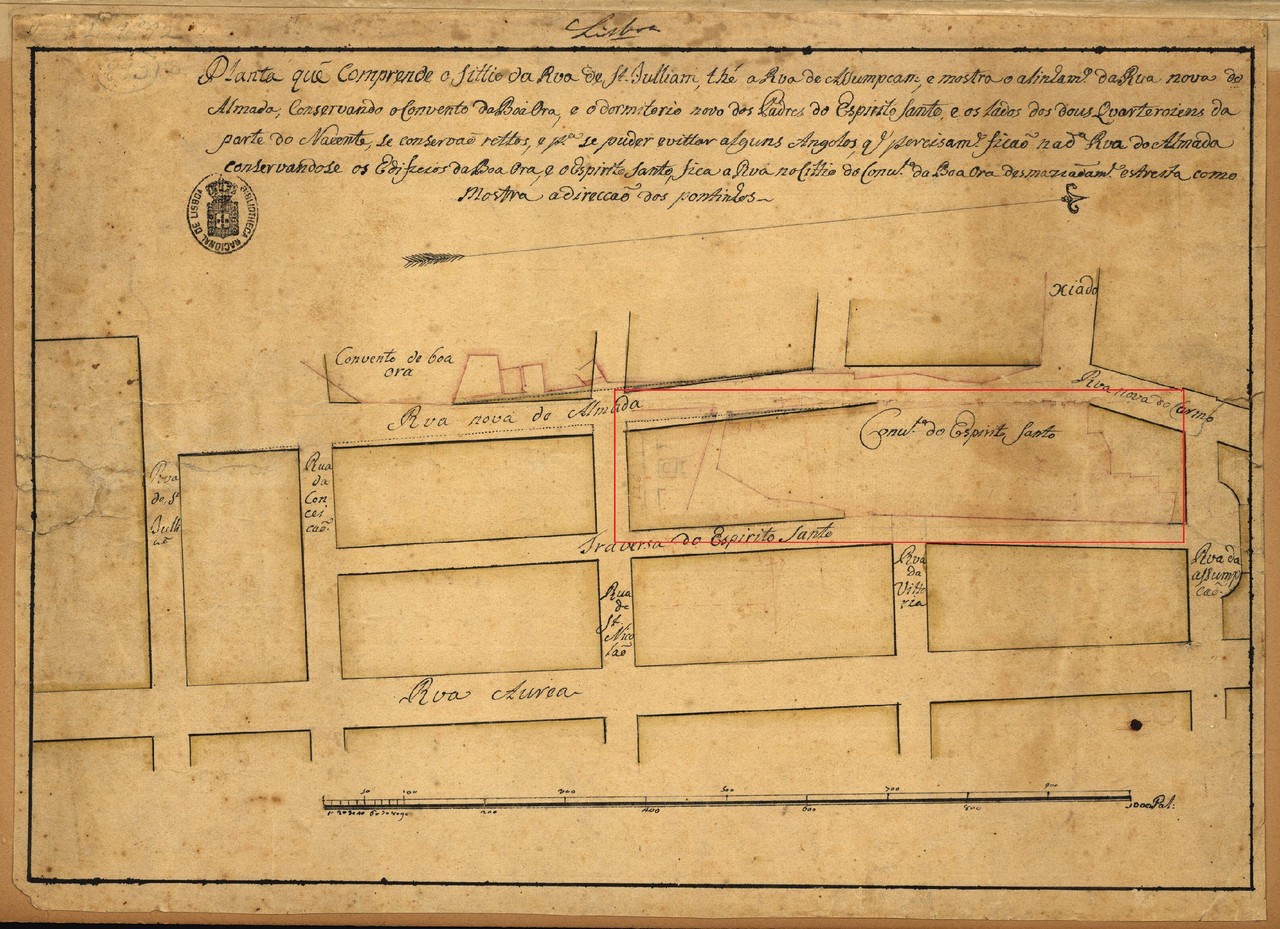 Lisboa
Planta que Comprende o sittio da Rua de St. Julliam, thé a Rua de Assumpcam, e mostra o alinham.º da Rua nova do
Almada, Conservando o Convento da Boa Ora, e o dormitorio novo dos Padres do Espirito Santo, e os lados dos dous Quarteroiens da
parte do Nacente, se conservaõ rettos, e p.ª se puder evittar alguns Angolos, q.' percisam.te ficaõ na d.ª Rua do Almada
conservandose os Edificios da Boa Ora, e o Espirito Santo, fica a Rua no Cittio do Conv.to da Boa Ora desmaziadam.te estreita como
Mostra a direccaõ dos pontinhos
BIBLIOTHECA NACIONAL DE LISBOA
Xiado
Convento de boa
ora
Rua nova do Carmo
Rua nova de Almada
Conv.to do Espirito Santo
Rua
de St.
Julli
aõ
Rua
da
Con
cei
caõ
Traversa do Espirito Santo
Rua
da
Vitto
ria
Rua da
assump
caõ
Rua
de
St.
Nico
laõ
Rua Aurea
50 100 300 500 700 900
10 20 30 40 50 60 70 80 90 200 400 600 800 1000 Pal: